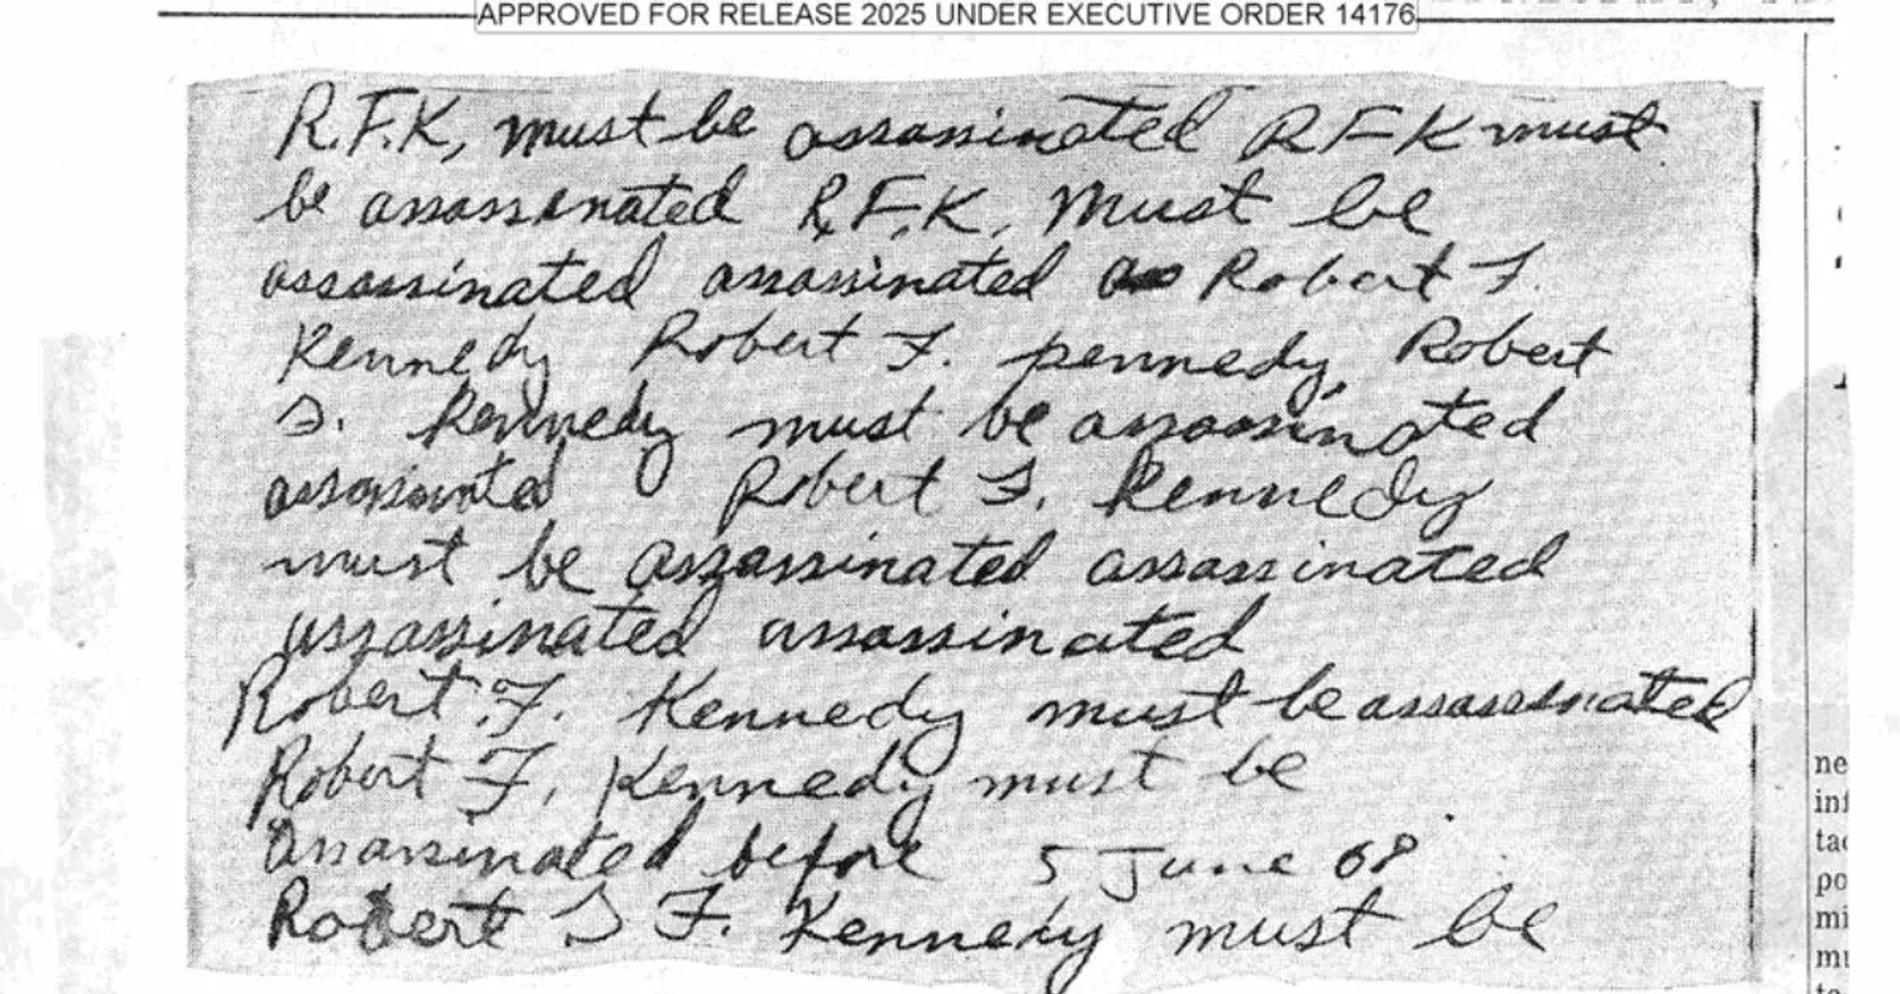 APPROVED FOR RELEASE 2025 UNDER EXECUTIVE ORDER 14176
R.F.K, must be assassinated RFK must
be assassinated R.F.K. Must be
assassinated assassinated as Robert F.
Kennedy Robert F. pennedy, Robert
F. Kennedy must be assassinated
assassinated Robert F. Kennedy
must be assassinated assassinated
assassinated assassinated
Robert F. Kennedy must be assassinated
Robert F, Kennedy must be
assassinated before 5 June 68
Robert F. Kennedy must be
ne
inf
tac
po
mi
mu